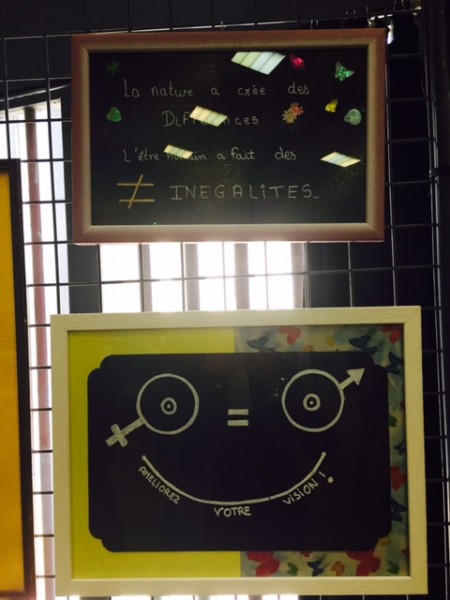 La nature a crée des
Différences
L'être humain a fait des
≠ INEGALITES_
=
AMELIOREZ VOTRE VISION !